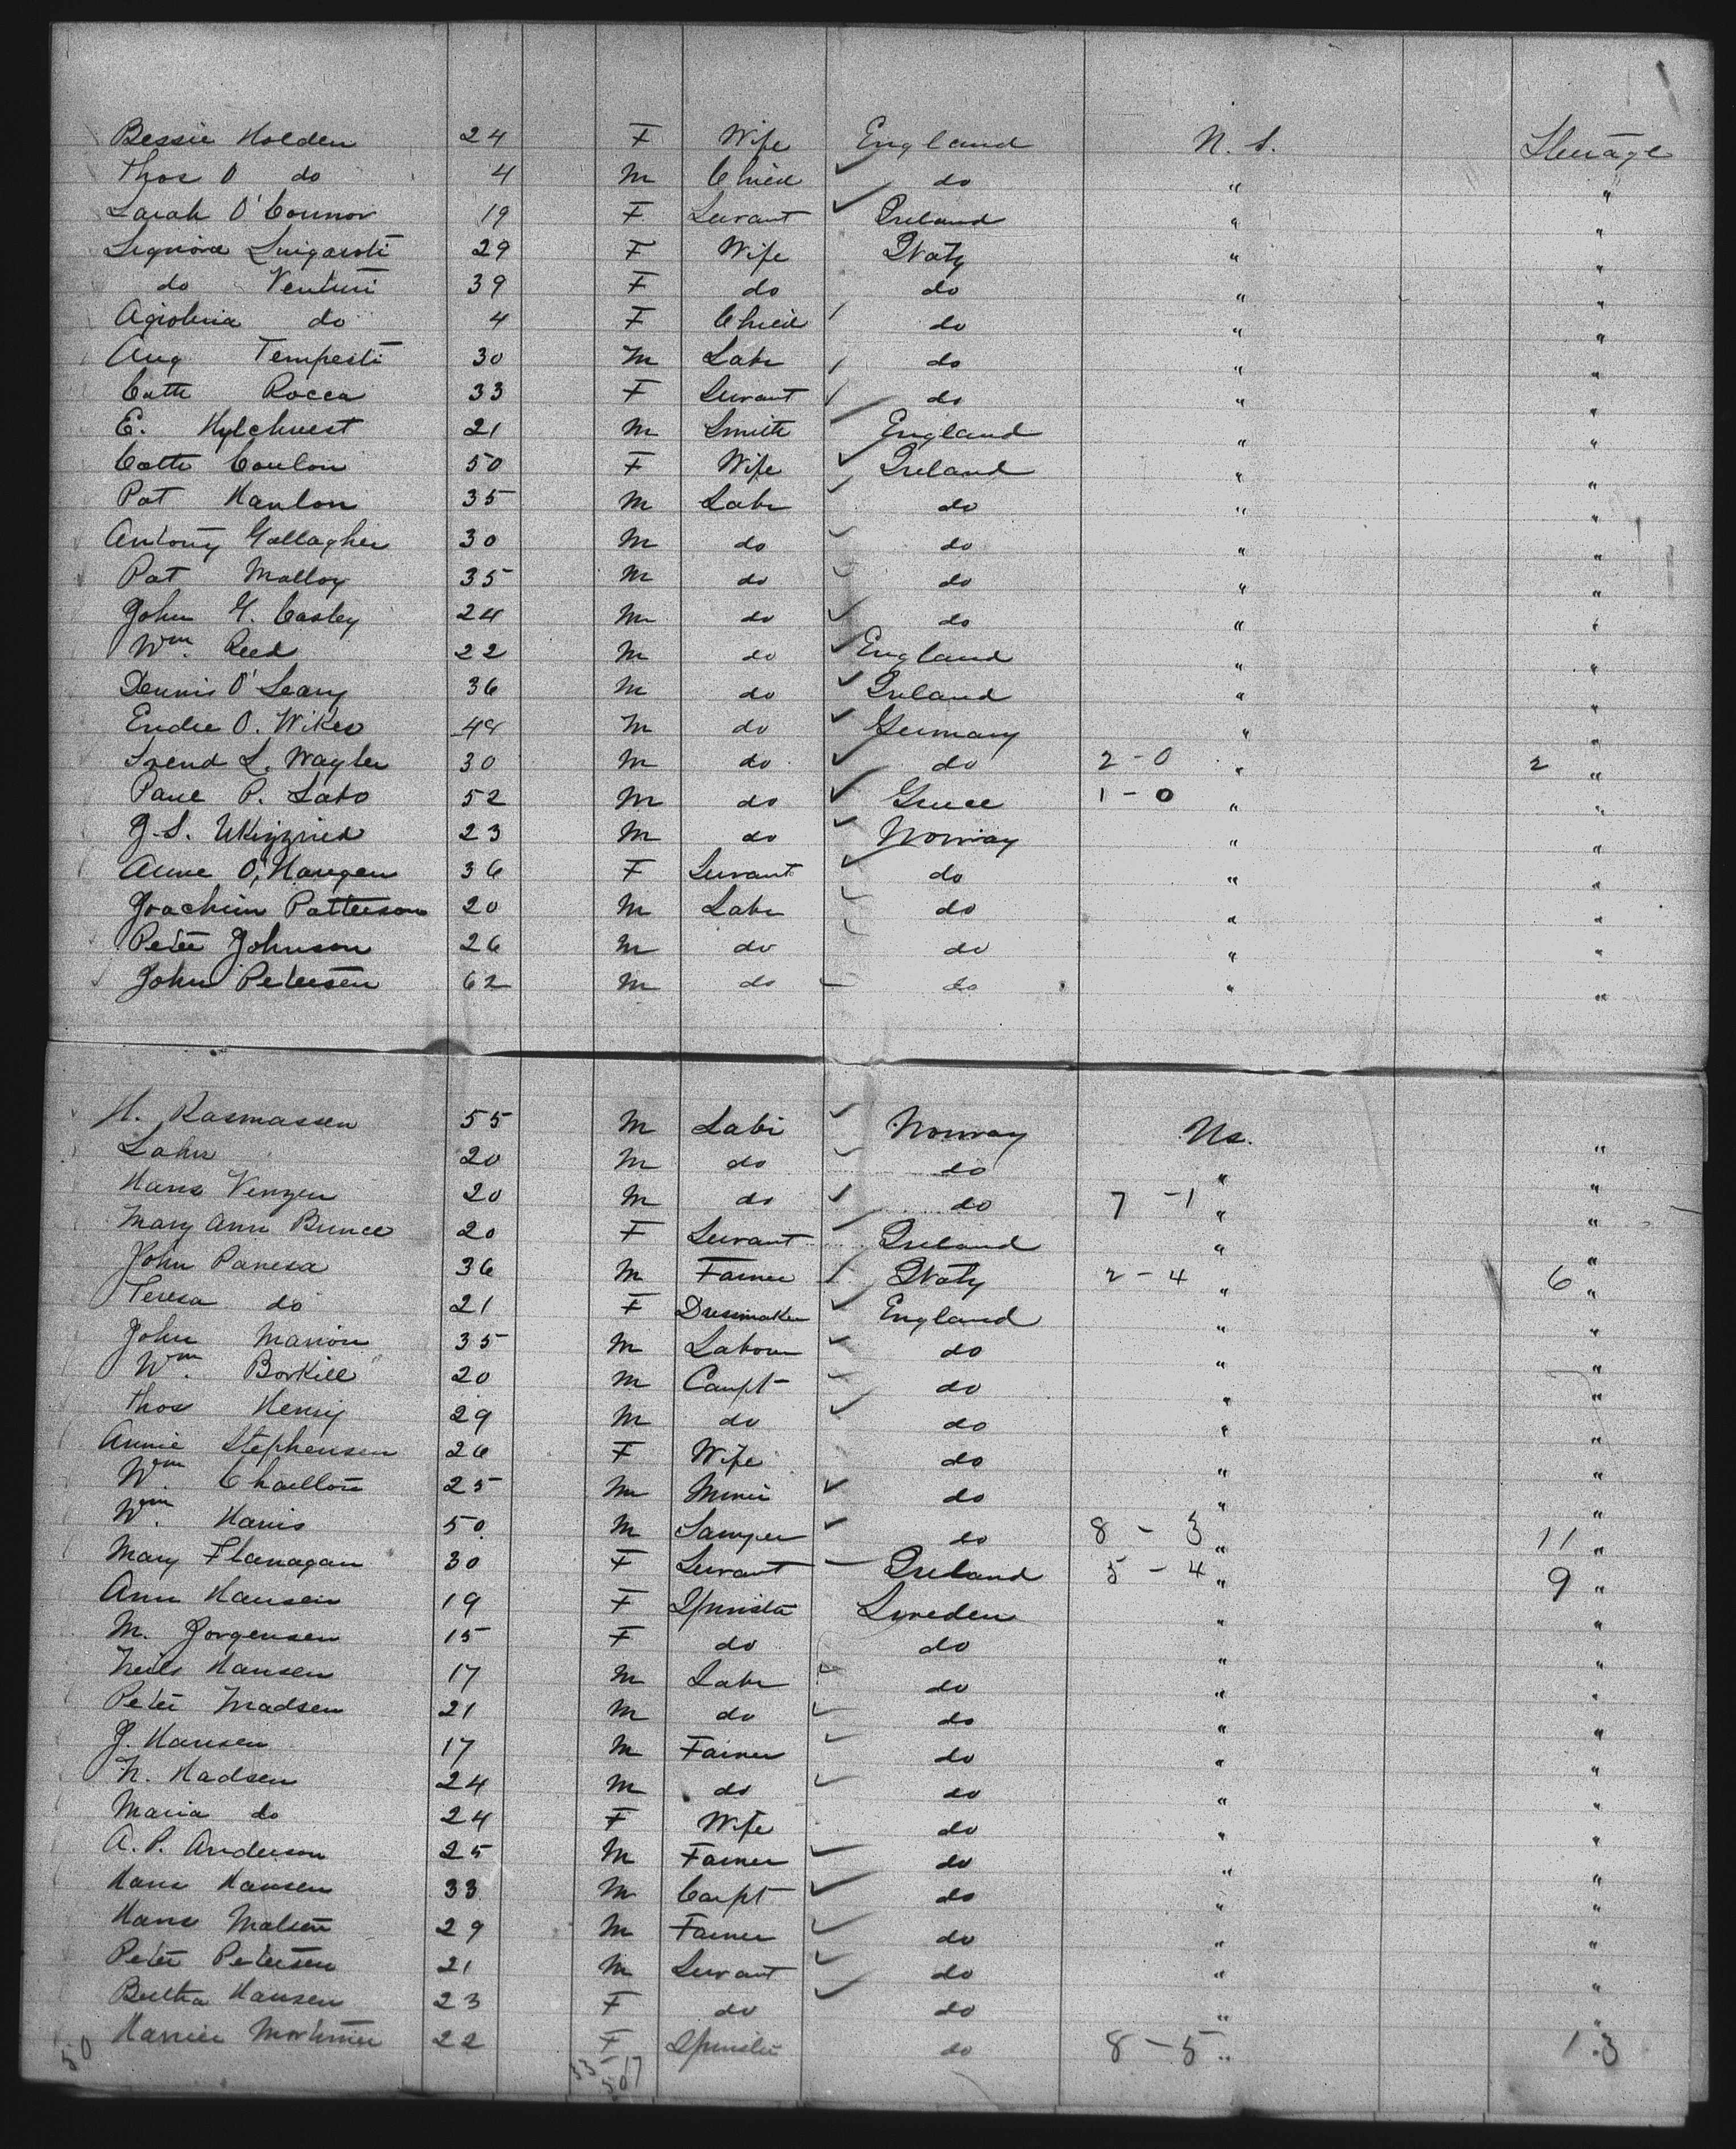 Bessie Holden 24 F Wife England N. S. Steerage
Thos O do 4 M Child do " "
Sarah O'Connor 19 F Servant Ireland " "
Signora 29 F Wife Italy " "
do Venturi 39 F do do " "
do 4 F Child do " "
Aug Tempesti 30 M Labr do " "
Cath Rocca 33 F Servant do " "
E. 21 M Smith England " "
Cath Conlon 50 F Wife Ireland " "
Pat Hanlon 35 M Labr do " "
Antony Gallagher 30 M do do " "
Pat Malloy 35 M do do " "
John G. Casley 24 M do do " "
Wm. Reed 22 M do England " "
Dennis O'Leary 36 M do Ireland " "
Endre O. Wikes M do Germany " "
Svend L. Wagler 30 M do do 2-0 " 2 "
Paul P. Lato 52 M do Greece 1-0 " "
J. S. 23 M do Norway " "
Anne O, Haugen 36 F Servant do " "
Joachim Patterson 20 M Labr do " "
Peter Johnson 26 M do do " "
John Petersen 62 M do do " "
H. Rasmassen 55 M Labr Norway Ns. "
20 M do do " "
Hans Venzen 20 M do do 7-1 " "
Mary Ann Bunce 20 F Servant Ireland " "
John Panesa 36 M Farmer Italy 2-4 " 6 "
Teresa do 21 F Dressmaker England " "
John Marion 35 M Labour do " "
Wm. Borkill 20 M Carpt do " "
Thos Henry 29 M do do " "
Annie Stephensen 26 F Wife do " "
Wm. 25 M Miner do " "
Wm. Harris 50 M do 8-3 " 11 "
Mary Flanagan 30 F Servant Ireland 5-4 " 9 "
Ann Hansen 19 F Spinster Sweden " "
M. Jorgensen 15 F do do " "
Neils Hansen 17 M Labr do " "
Peter Madsen 21 M do do " "
J. Hansen 17 M Farmer do " "
N. Madsen 24 M do do " "
Maria do 24 F Wife do " "
A. P. Anderson 25 M Farmer do " "
Hans Hansen 33 M Carpt do " "
Hans 29 M Farmer do " "
Peter Petersen 21 M Servant do " "
Bertha Hansen 23 F do do " "
22 F Spinster do 8-5 " 13
50 33 17
50